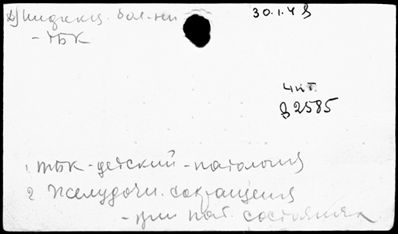 2) инфекц. бол-ни 30.1.48
- ТБК
чит.
В2585
1. ТБК - детский - патология
2 Желудочн. сокращения
- при пат. состояниях